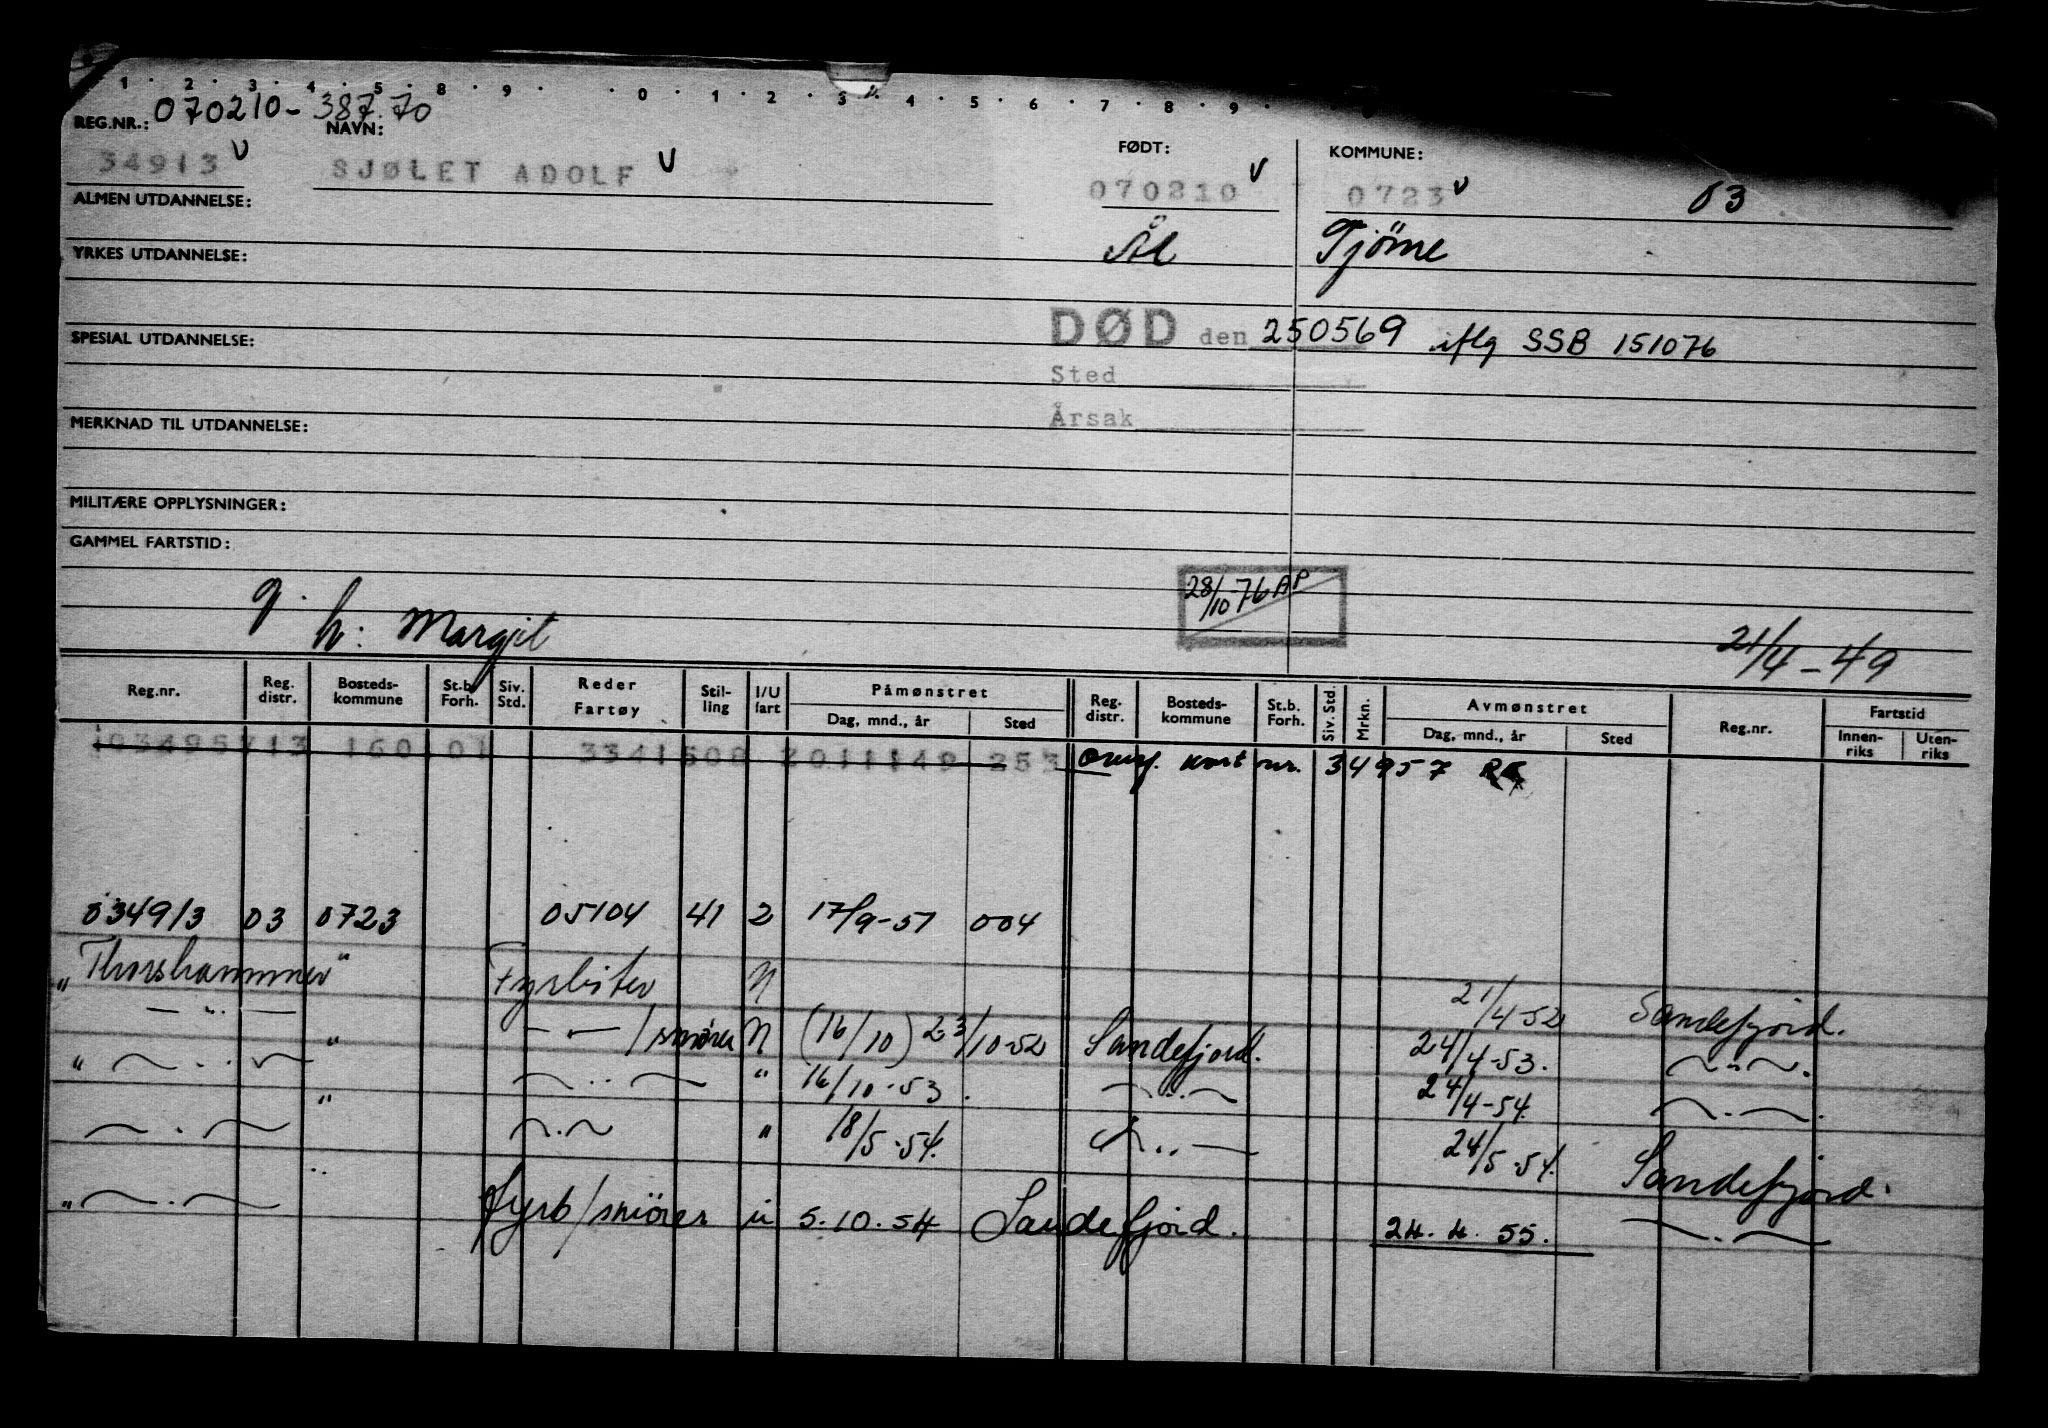 1 · 2 · 3 · 4 · 5 · 8 · 9 · · 0 · 1 · 2 · 3 · 4 · 5 · 6 · 7 · 8 · 9 ·
REG.NR.: 070210-387.70
NAVN:
FØDT:
KOMMUNE:
34913 v SJØLET ADOLF v 070210 v 0723 v 03
ALMEN UTDANNELSE:
Ål Tjöme
YRKES UTDANNELSE:
DØD den 250569 iflg SSB 151076
SPESIAL UTDANNELSE:
Sted
Årsak
MERKNAD TIL UTDANNELSE:
MILITÆRE OPPLYSNINGER:
GAMMEL FARTSTID:
g. h: Margit
28/10-76 AP
21/4-49
Reg.nr. Reg. distr. Bosteds- kommune St.b. Forh. Siv. Std. Reder Fartøy Stil- ling I/U fart Påmønstret Dag, mnd., år Sted Reg. distr. Bosteds- kommune St.b. Forh. Siv. Std. Mrkn. Avmønstret Dag, mnd., år Sted Reg.nr. Fartstid Innen- riks Uten- riks
160101 3341508 2011149 253 kort nr. 34957
034913 03 0723 05104 41 2 17/9-51 004
" Thorshammer " Fyrbøter N 21/4-52 Sandefjord.
— " — — " — /smører N (16/10) 23/10-52 Sandefjord. 24/4-53. — " —.
" — " — " — " — " 16/10-53. — " — 24/4-54. — " —.
— " — " — " — " 18/5-54. — " — 24/5-54. Sandefjord.
" — " — " fyrb/smörer u 5.10.54 Sandefjord. 24.4.55. — " —